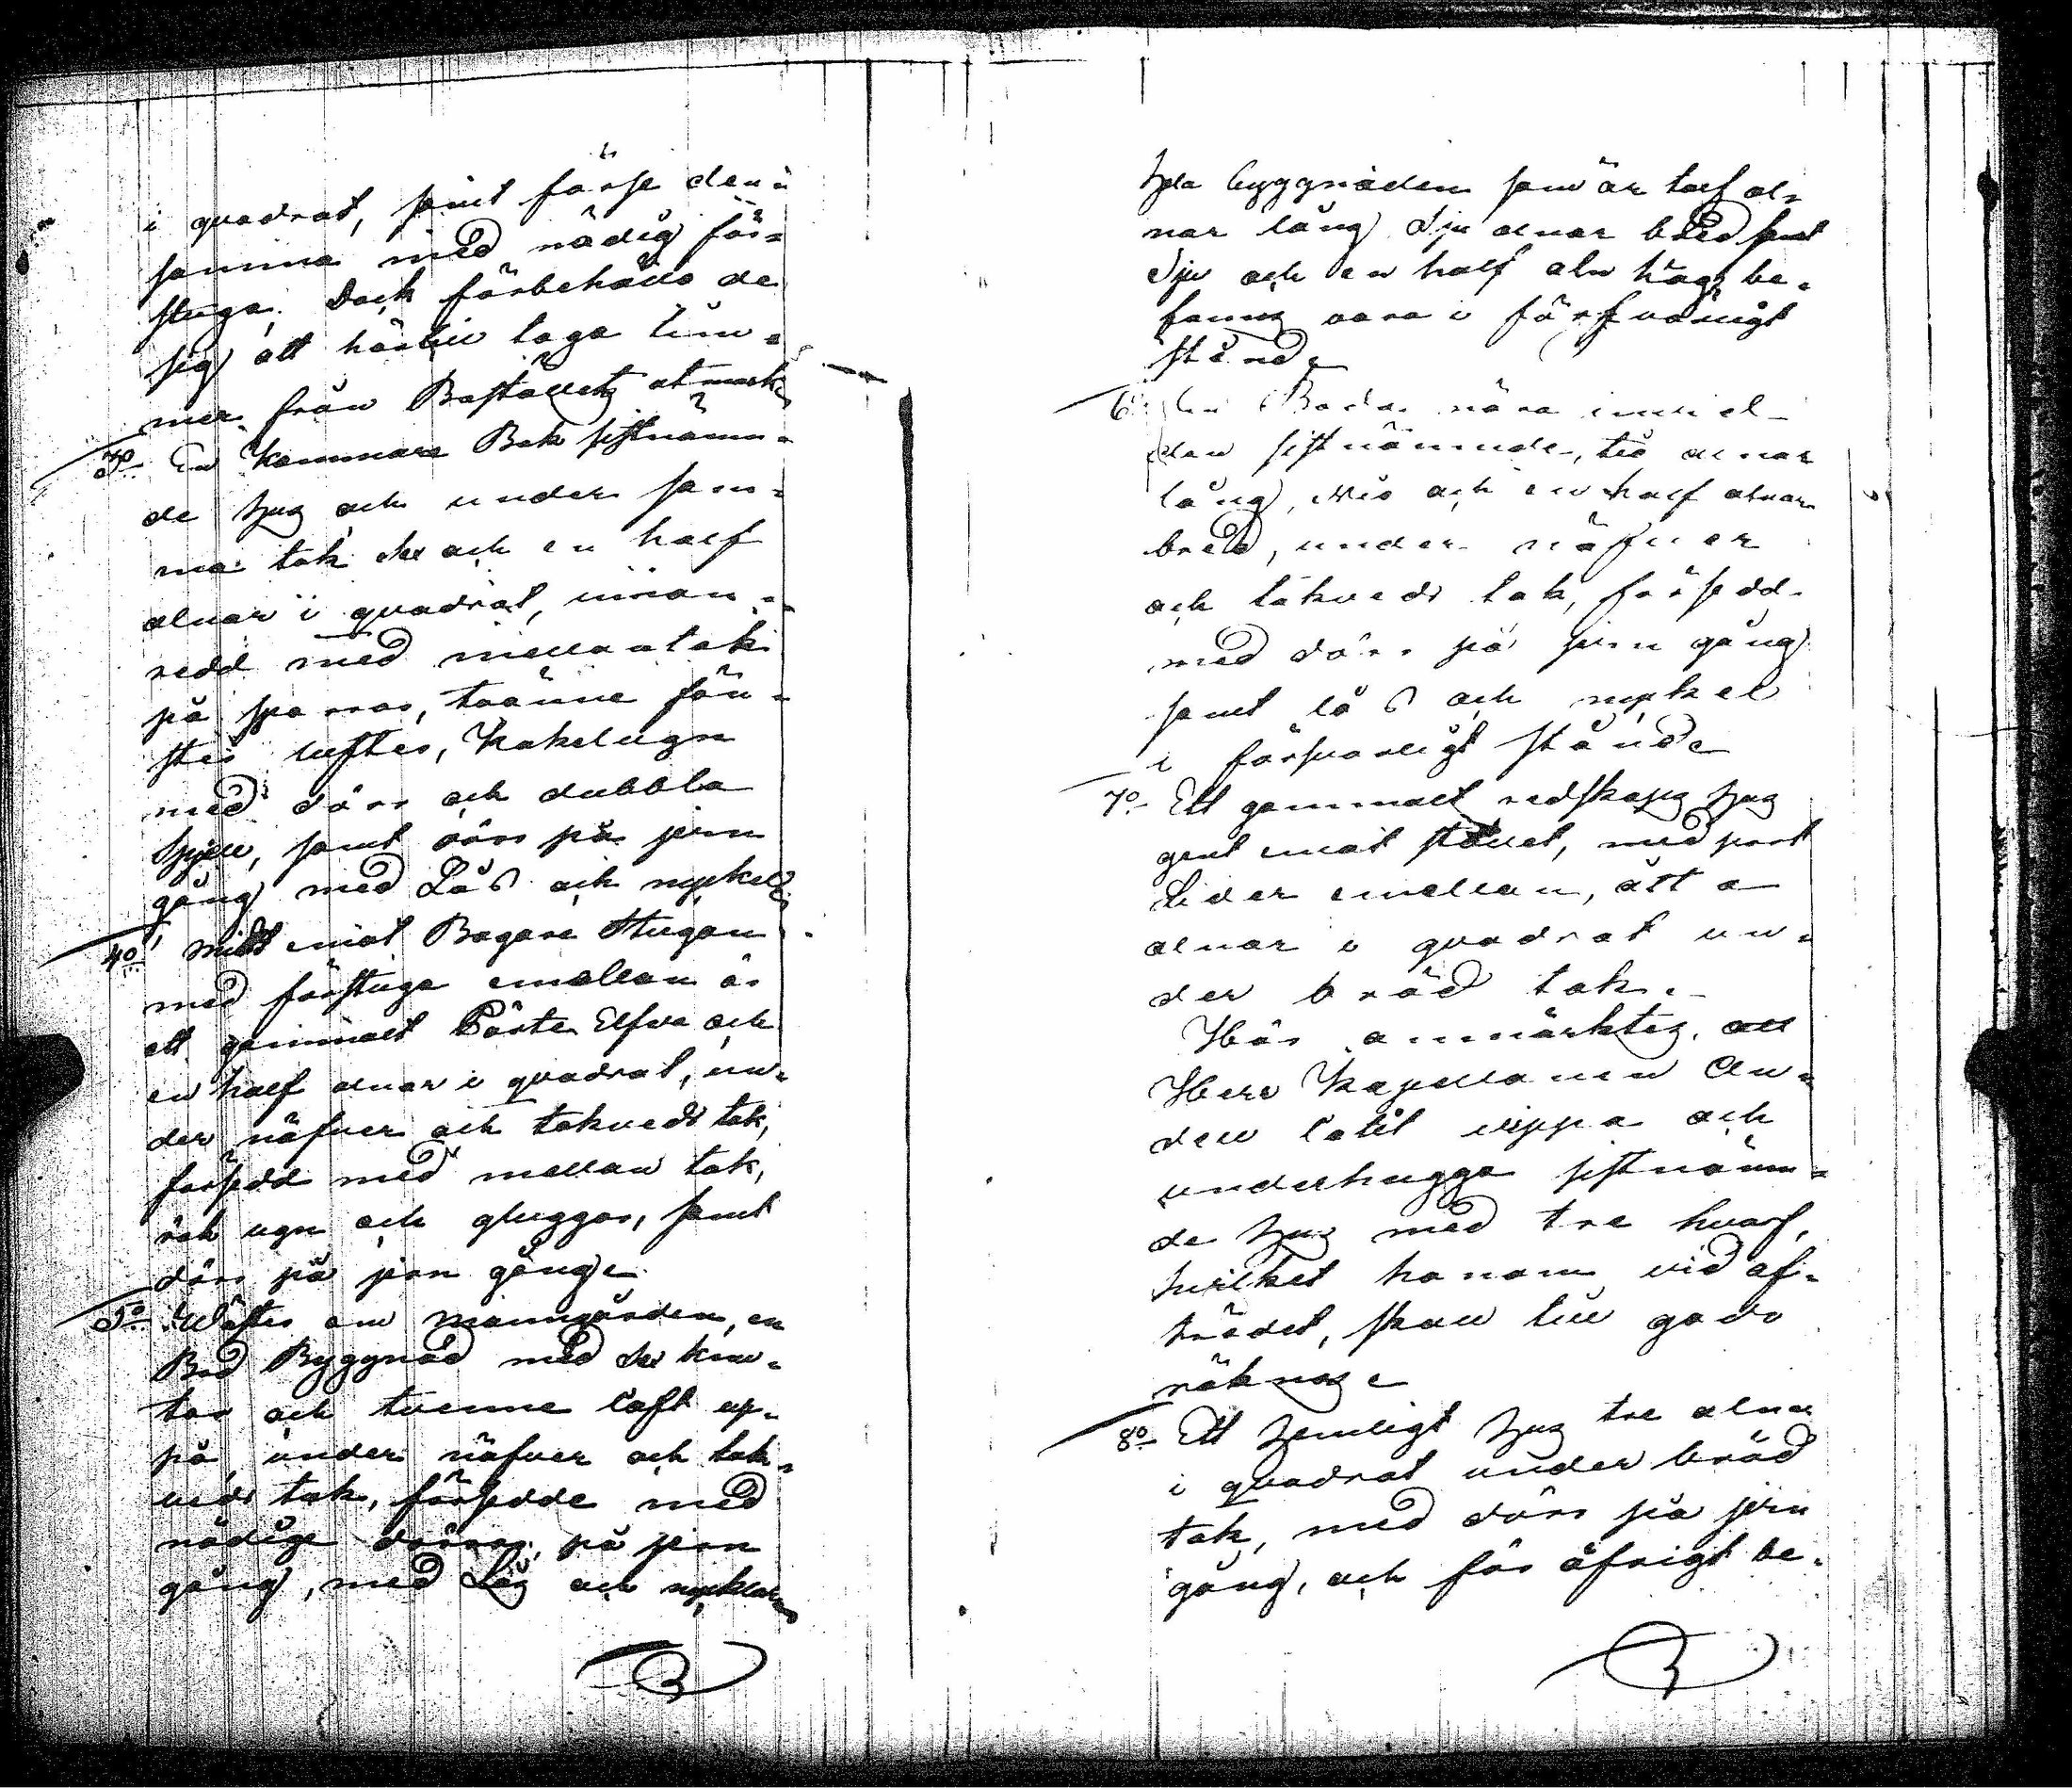 i quadrat, samt förse den=
samma med nödig för=
stuga. Dock förbehålls de
sig att härtill taga tim=
mer från Boställets utmark
3o En Kammare Bak sistnämn=
de hus och under sam=
ma tak Sex och en half
alnar i quadrat, innan=
redd med mellantak
på sparrar, tvänne fön=
ster lufter, Kakelugn
med dörr och dubbla
Spjell, samt dörr på jern
gång med Lås och nyckel
4o Midt emot Bagare Stugan
med förstuga emellan är
ett gammalt Pörte Elfva och
en half alnar i quadrat, un=
der näfver och takveds tak,
försedd med mellan tak,
rök ugn och gluggar, samt
dörr på jern gång
5o Wäster om manngården, en
Bod Byggnad med Sex knu=
tar och tvenne loft up=
på, under näfver och tak=
veds tak, försedde med
nödige dörrar på jern
gång, med Lås och nycklar
hela byggnaden som är tolf al=
nar lång Sju alnar bred samt
Sju och en half aln hög, be=
fanns vara i försvarligt
stånd
6o En Boda nära invid
den sistnämnde, tio alnar
lång, Nio och en half alnar
bred, under näfver
och takveds tak, försedd
med dörr på jern gång
samt lås och nyckel
i försvarligt stånd
7o Ett gammalt redskaps hus
gent emot stallet, med port
Lider emellan, åtta
alnar i quadrat un=
der bräd tak.
Här anmärktes, att
Herr Kapellanen
låtit vippa och
underhugga sistnämn=
de hus med tre hvarf,
hvilket honom vid af=
trädet, skall till godo
räknas
8o Ett hemligt hus tre alnar
i quadrat under bräd
tak, med dörr på jern
gång, och för öfrigt be=